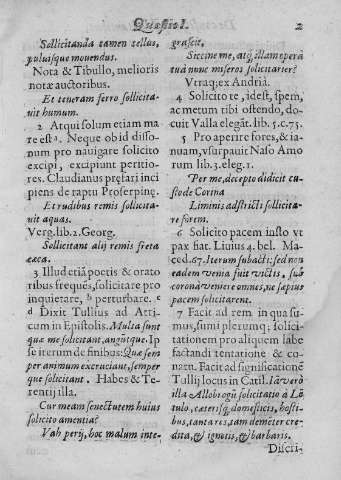 Quæstio I. 2
Sollicitanda tamen tellus,
puluisque mouendus.
Nota & Tibullo, melioris
notæ auctoribus.
Et teneram ferro sollicita-
uit humum.
2 Atqui solum etiam ma-
re est a. Neque ob id disso-
num pro nauigare solicito
excipi, excipiant peritio-
res. Claudianus præfari inci
piens de raptu Proserpinę.
Et rudibus remis sollicita-
uit aquas.
Verg. lib. 2. Georg.
Sollicitant alij remis freta
cæca.
3 Illud etiã poetis & orato
ribus frequēs, solicitare pro
inquietare, b perturbare. c
d Dixit Tullius ad Atti-
cum in Epistolis. Multa sunt
quæ me solicitant, angũtque. Ip
se iterum de finibus: Quæ sem
per animum excruciant, semper
que solicitant. Habes & Te-
rentij illa.
Cur meam senectutem huius
solicito amentia?
Vah perij, hoc malum inte-
grascit.
Siccine me, atq; illam operâ
tuâ nunc miseros solicitarier?
Vtraq; ex Andriâ.
4 Solicito te, id est, spem,
ac metum tibi ostendo, do-
cuit Valla elegãt. lib. 5. c. 73.
5 Pro aperire fores, & ia-
nuam, vsurpauit Naso Amo
rum lib. 3. eleg. 1.
Per me, decepto didicit cu-
stode Corina
Liminis adstricti sollicita-
re forem.
6 Solicito pacem iusto vt
pax fiat. Liuius 4. bel. Ma-
ced. 67. Iterum subacti: sed non
eadem venia fuit victis, suâ
coronâ venere omnes, ne sæpius
pacem solicitarent.
7 Facit ad rem in qua su-
mus, sumi plerumq; solici-
tationem pro aliquem labe
factandi tentatione & co-
natu. Facit ad significationē
Tullij locus in Catil. Ia verò
illa Allobrogũ solicitatio à Lē-
tulo, cæterisq; domesticis, hosti-
bus, tanta res, tam demēter cre-
dita, & ignotis, & barbaris.
Discri-